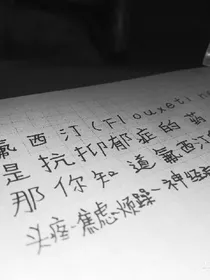 氟西汀(Flouxeti
是抗抑郁症的药
那你知道氟西汀
头疼、焦虑、烦躁、神经